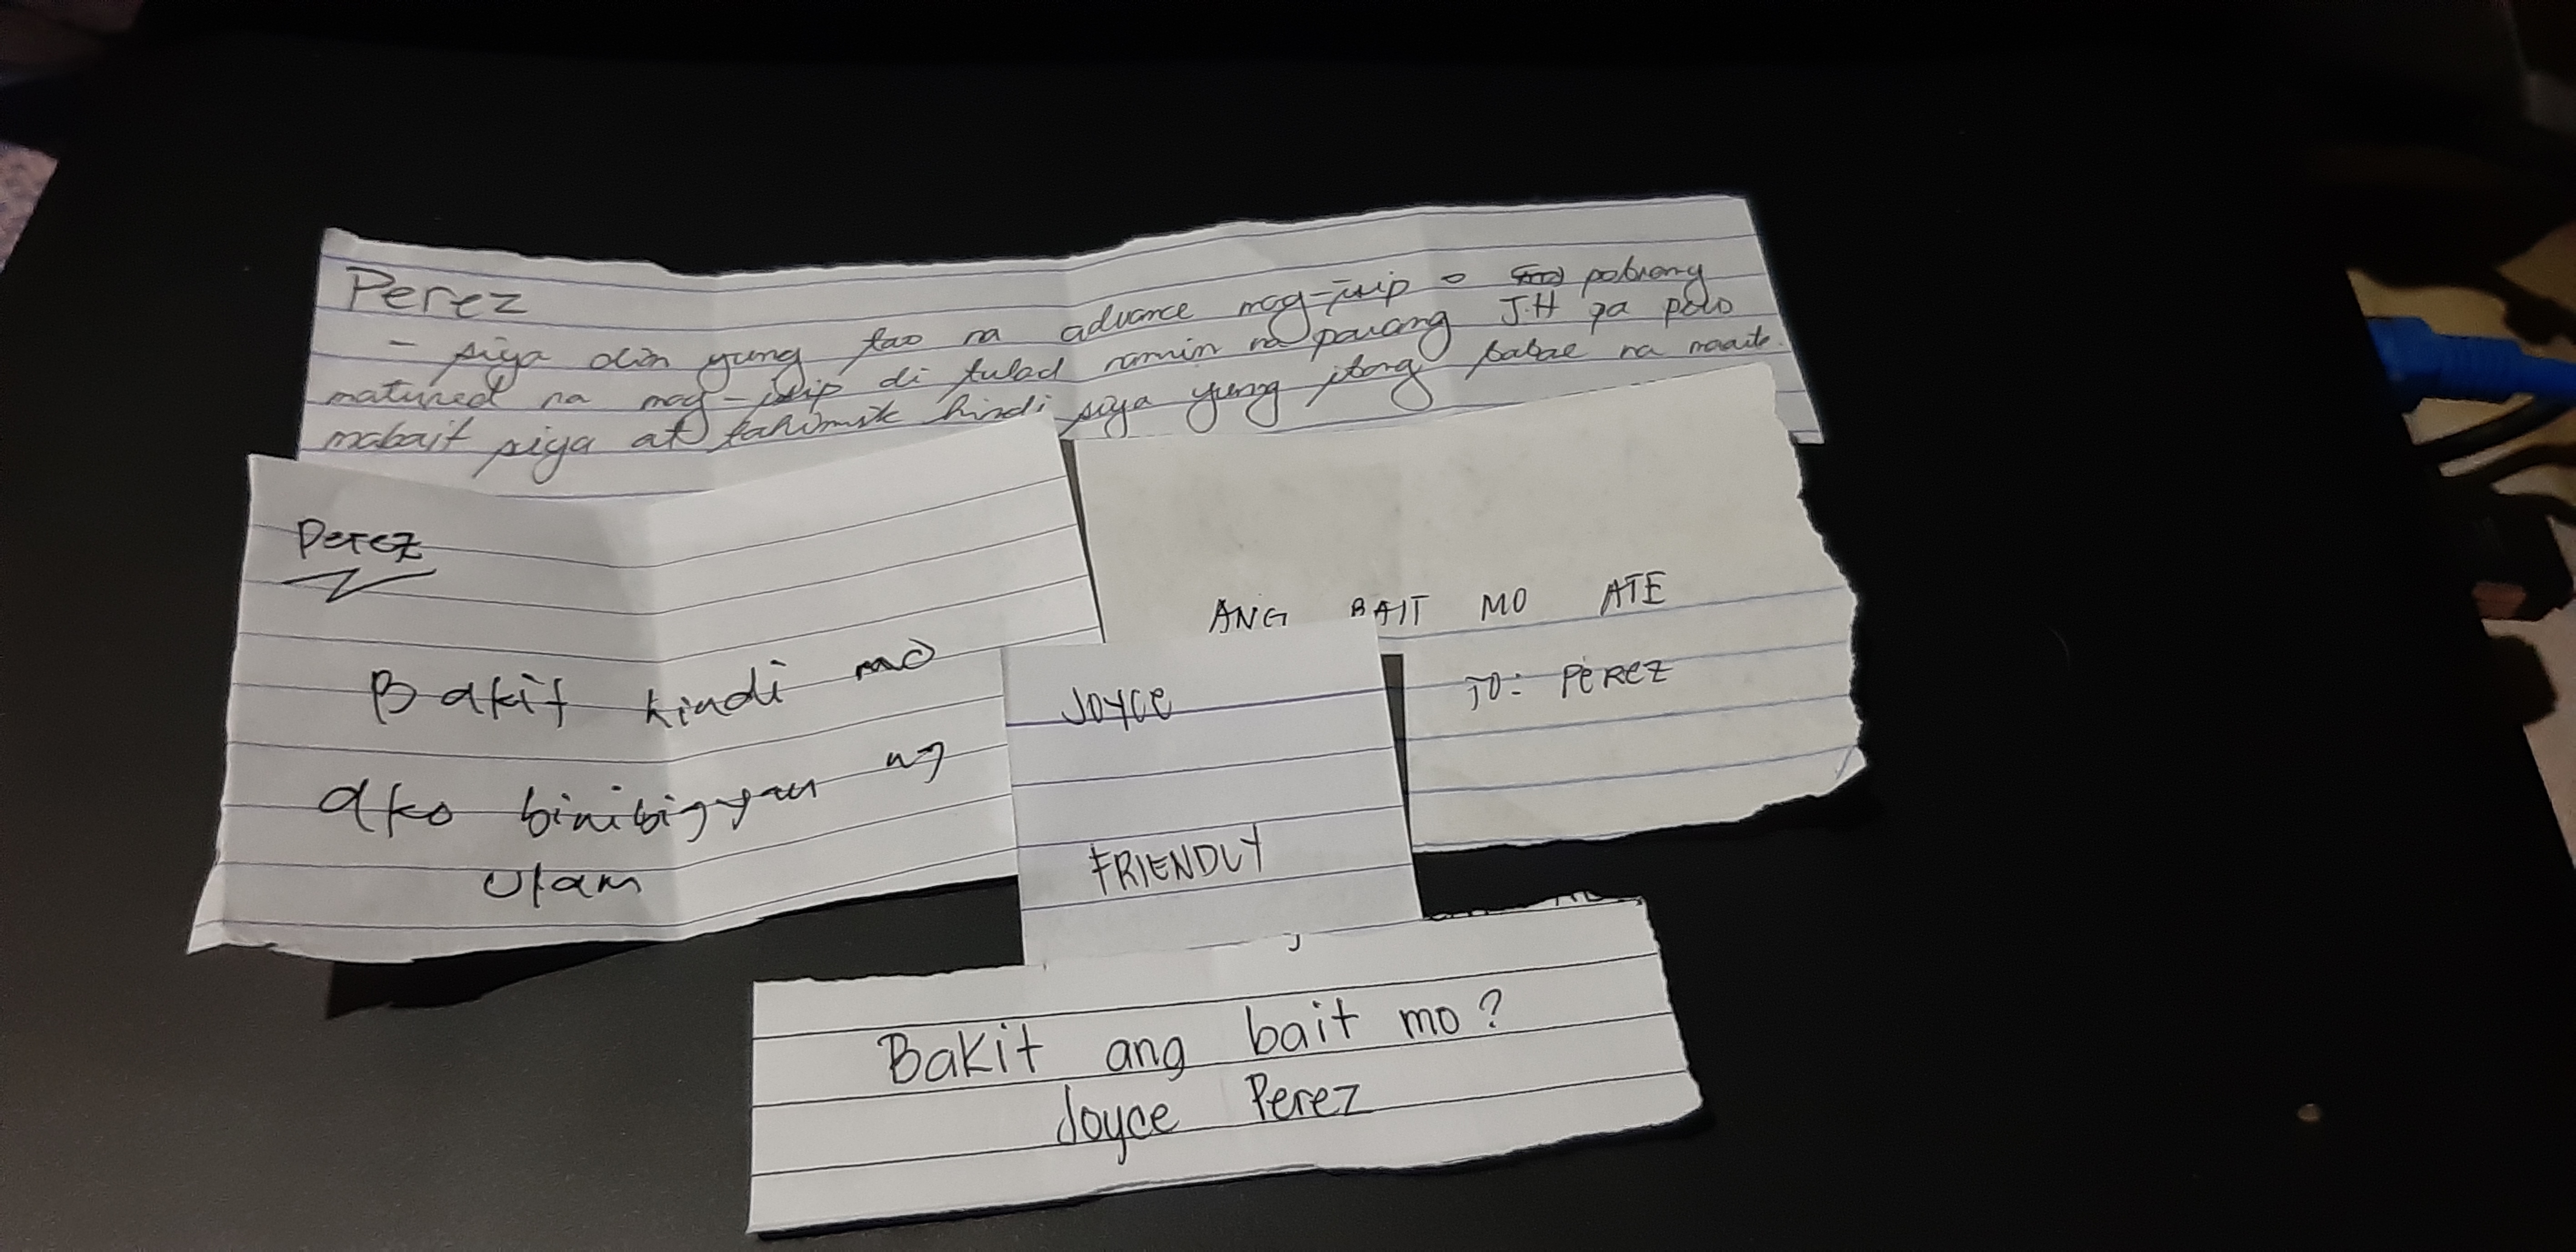 Perez
- siya din yung tao na advance mag-isip o pobrang
matured na mag-isip di tulad namin na parang J.H pa polo
mabait siya at tahimik hindi siya yung itong babae na
Perez
Bakit hindi mo
ako binibigyan ng
Ulam
ANG BAIT MO ATE
TO: PEREZ
JOYCE
FRIENDLY
Bakit ang bait mo?
Joyce Perez